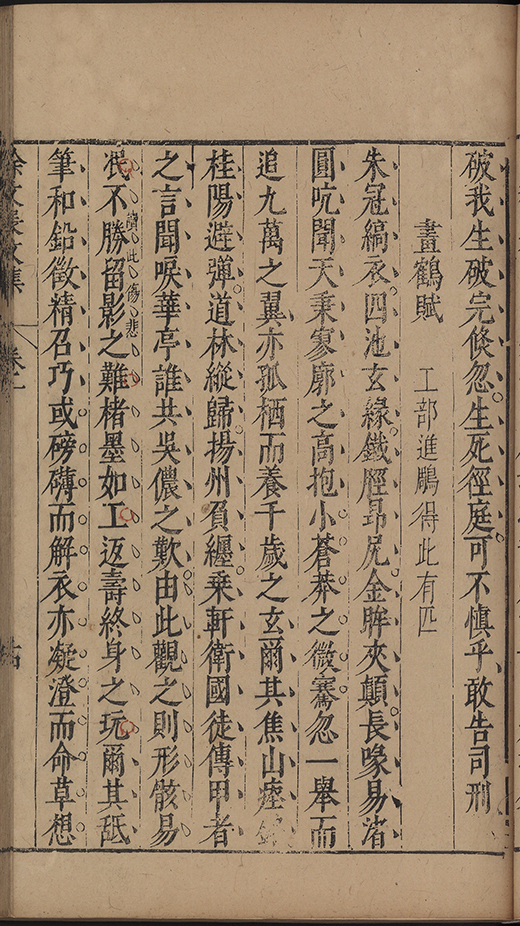 破我生破完倐忽生死徑庭可不慎乎敢告司刑
畫鶴賦 工部進鵰得此有匹
朱冠縞衣四池玄緣鐵脛昂尻金眸夾顛長喙易渚
圓吭聞天秉寥廓之高抱小蒼莽之微騫忽一舉而
追九萬之翼亦孤栖而養千歲之玄爾其焦山瘞
桂陽避彈道林縱歸揚州負纏乗軒衛國徒傳甲者
之言聞唳華亭誰共吳儂之歎由此觀之則形骸易
讀此傷悲
不勝留影之難楮墨如工返壽終身之玩爾其舐
筆和鉛徵精召巧或磅礴而解衣亦凝澄而命草想
徐文長文集 卷一